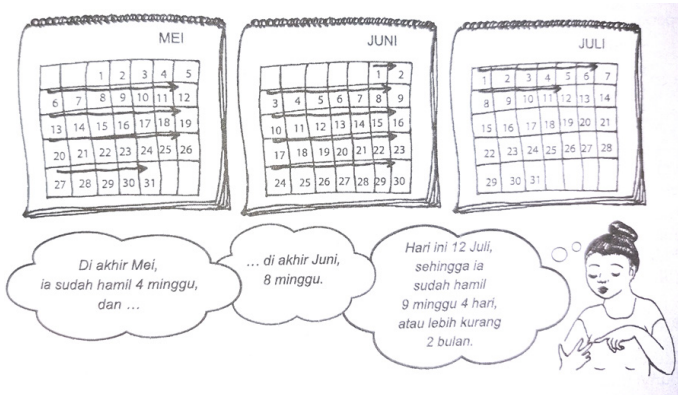 MEI
1 2 3 4 5
6 7 8 9 10 11 12
13 14 15 16 17 18 19
20 21 22 23 24 25 26
27 28 29 30 31
JUNI
1 2
3 4 5 6 7 8 9
10 11 12 13 14 15 16
17 18 19 20 21 22 23
24 25 26 27 28 29 30
JULI
1 2 3 4 5 6 7
8 9 10 11 12 13 14
15 16 17 18 19 20 21
22 23 24 25 26 27 28
29 30 31
Di akhir Mei,
ia sudah hamil 4 minggu,
dan ...
... di akhir Juni,
8 minggu.
Hari ini 12 Juli,
sehingga ia
sudah hamil
9 minggu 4 hari,
atau lebih kurang
2 bulan.